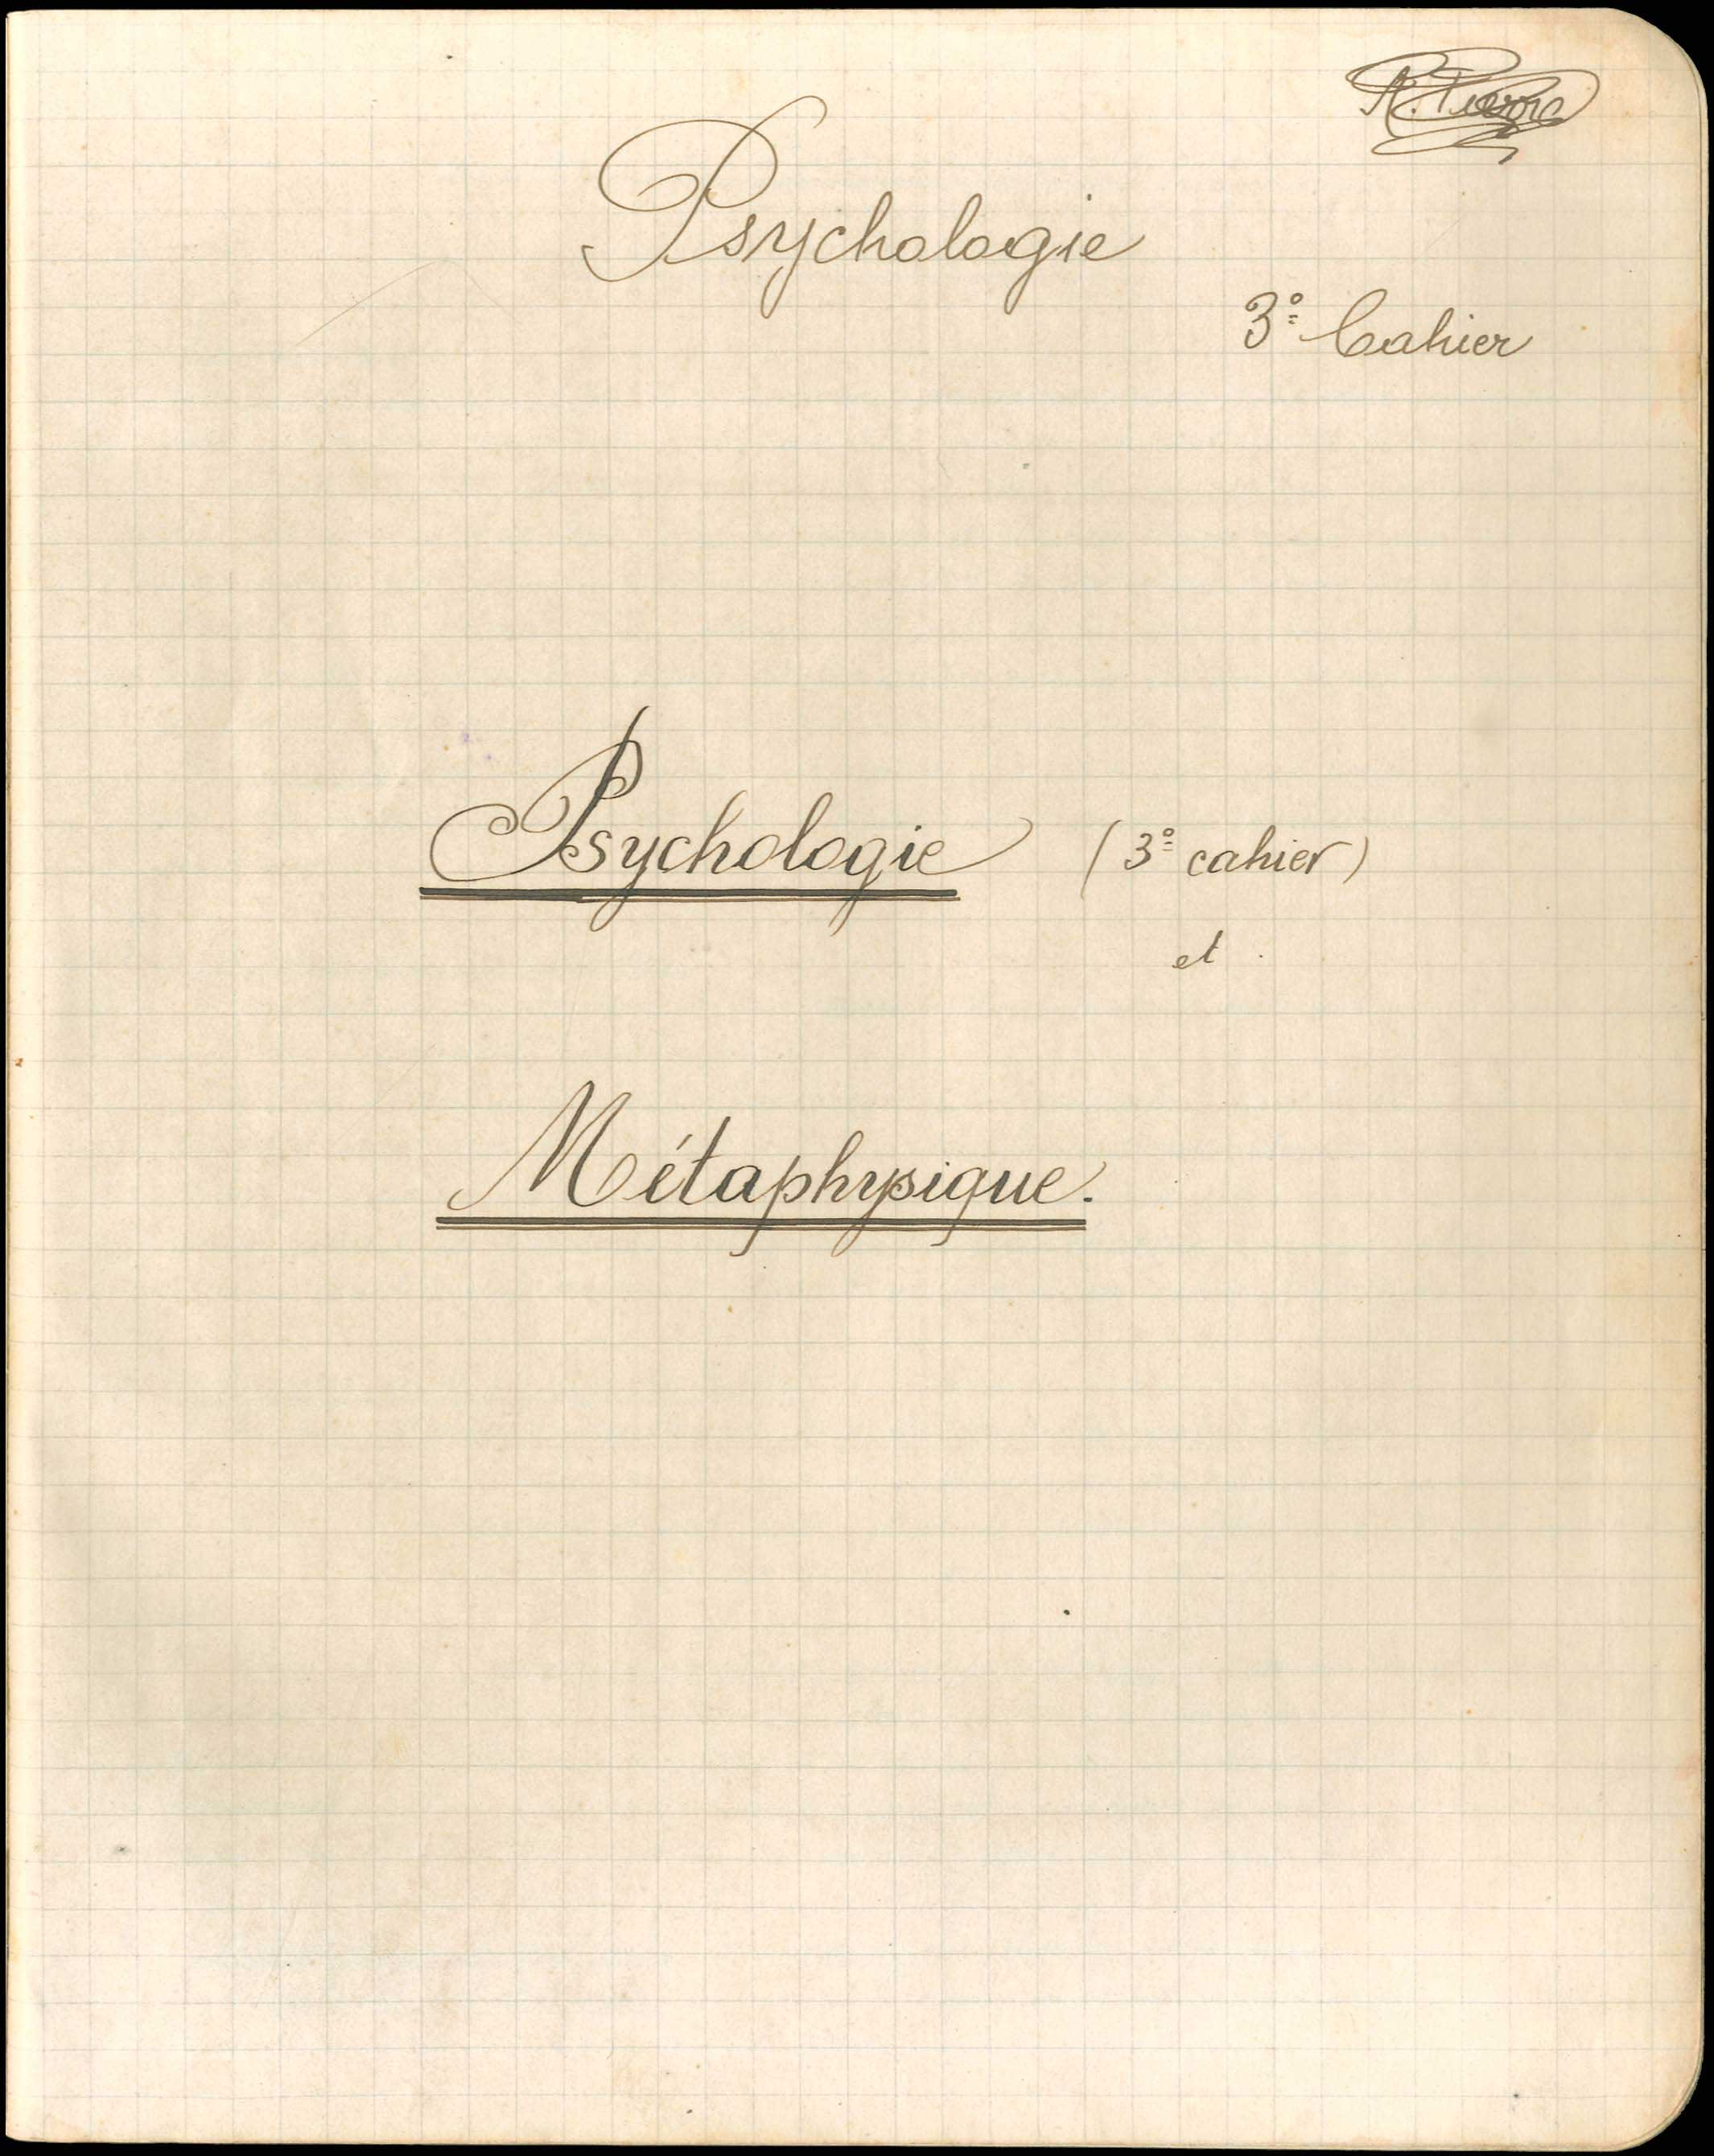 Psychologie
3º Cahier
Psychologie (3º cahier)
et
Métaphysique.